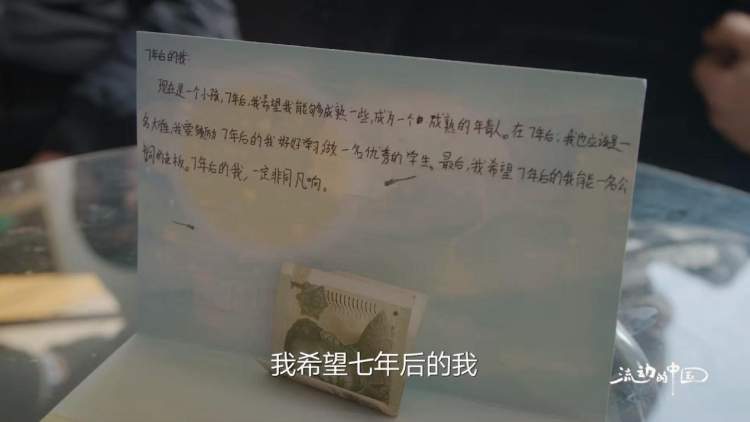 7年后的我:
现在是一个小孩,7年后,我希望我能够成熟一些,成为一个成熟的年青人。在7年后,我也应该是一
名大学生,我要鼓励7年后的我好好学习,做一名优秀的学生。最后,我希望7年后的我能一名公
司的老板。7年后的我,一定非同凡响。
我希望七年后的我
流动的中国